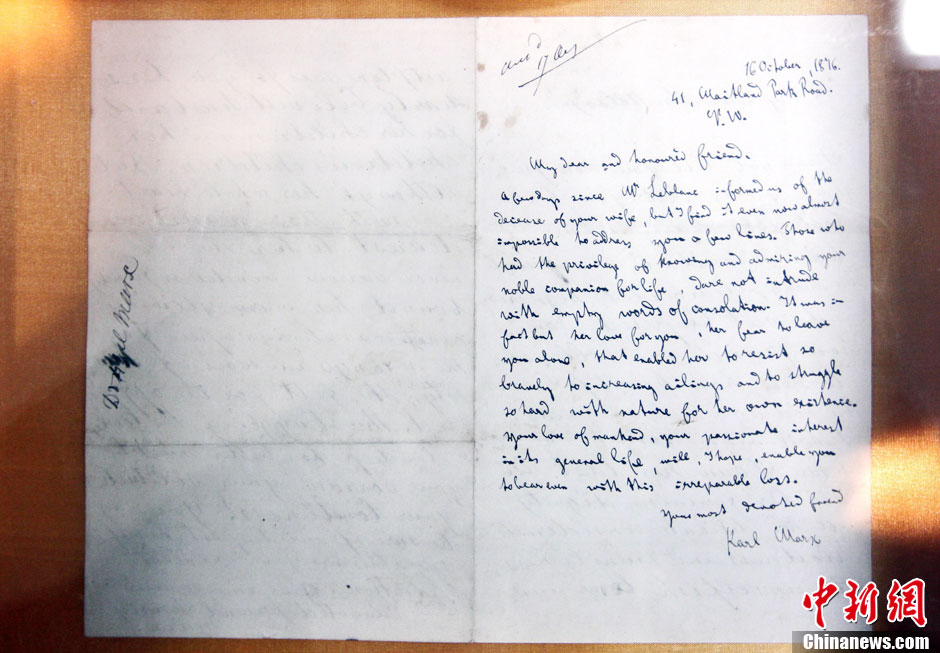 ans^d
17 Oct
16 October, 1876.
41, Maitland Park Road.
N. W.
My dear and honoured friend.
A few days since Mr Leblanc informed us of the
decease of your wife, but I find it even now almost
impossible to address you a few lines. Those who
had the privilege of knowing and admiring your
noble companion for life, dare not intrude
with empty words of consolation. It was in
fact but her love for you, her fear to leave
you alone, that enabled her to resist so
bravely to increasing ailings and to struggle
so hard with nature for her own existence.
Your love of mankind, your passionate interest
in its general life, will, I hope, enable you
to bear even with this irreparable loss.
Yours most devoted friend
Karl Marx
Dr Karl Marx
中新网
Chinanews.com